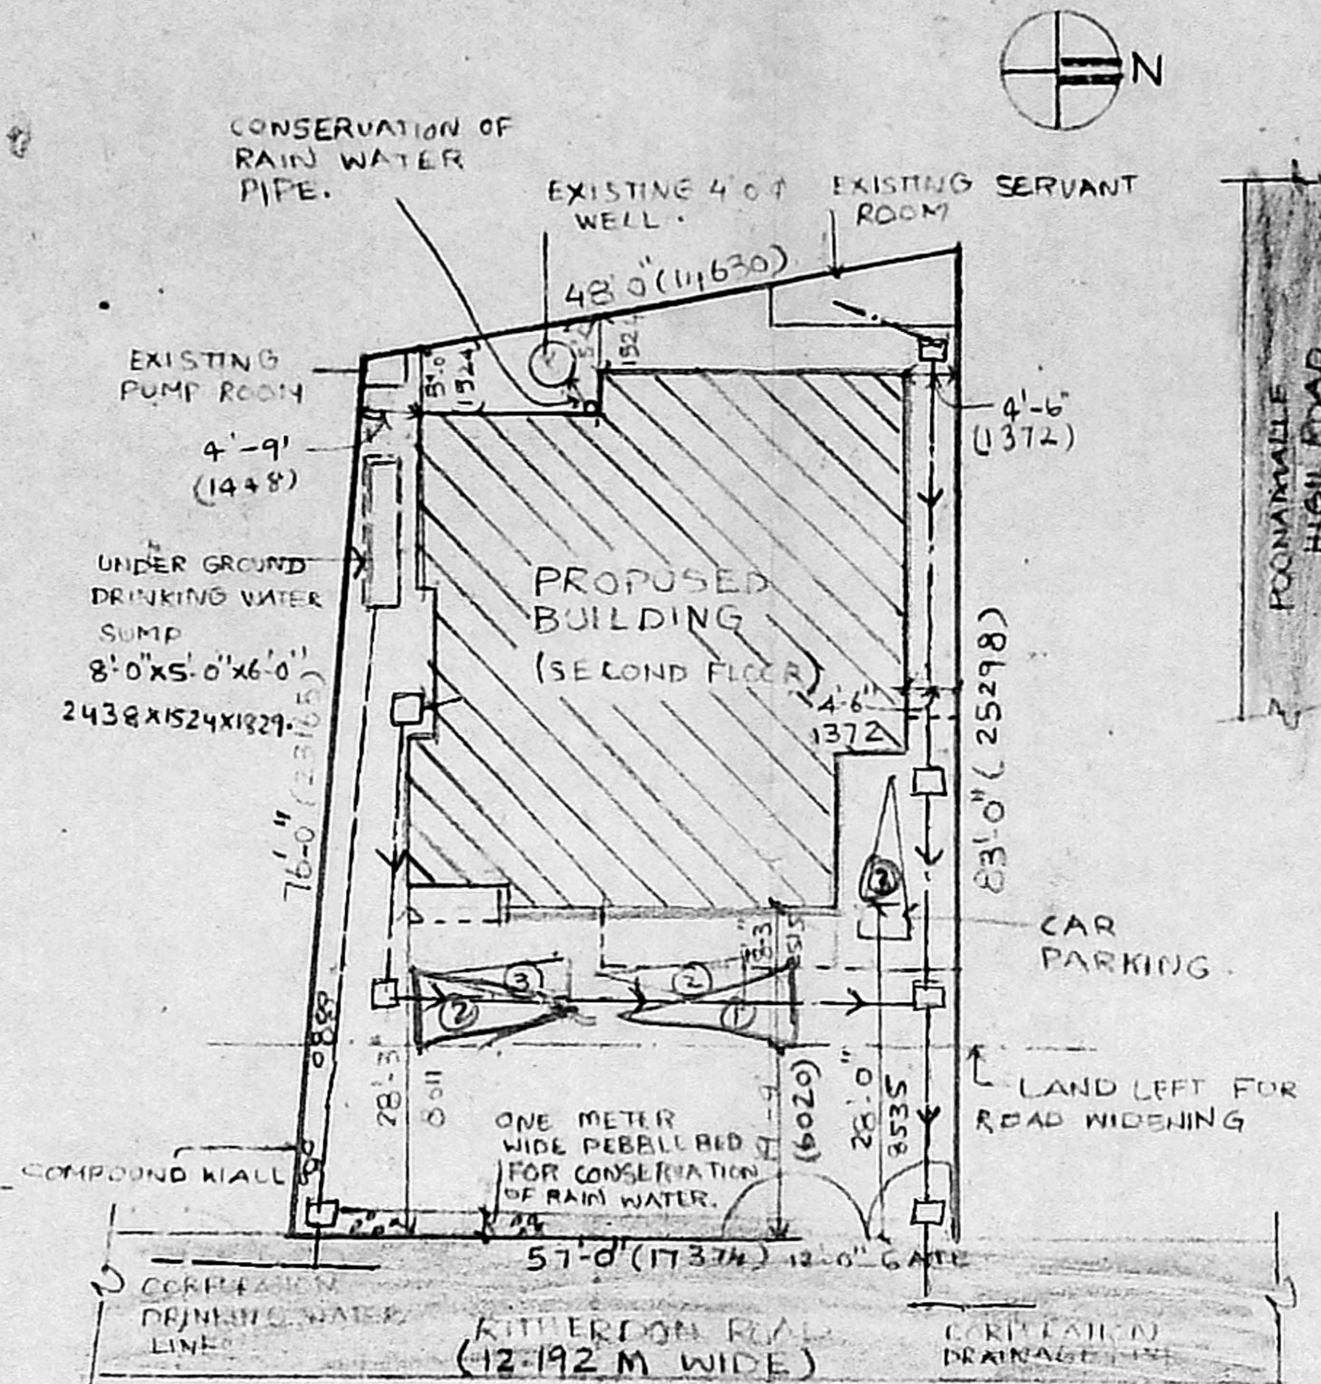 N
CONSERVATION OF
RAIN WATER
PIPE.
EXISTING 4'0
WELL.
EXISTING SERVANT
ROOM
48'0"(11,630)
EXISTING
PUMP ROOM
5'-0"
(1524)
1524
4'-9'
(1448)
4'-6"
(1372)
POONAMALLE
HIGH ROAD
UNDER GROUND
DRINKING WATER
SUMP
8'-0"X5'-0"X6'-0"
2438X1524X1829.
PROPOSED
BUILDING
(SECOND FLOOR)
4'-6"
1372
76'-0" (23165)
83'-0" (25298)
3
CAR
PARKING.
8'-3"
2515
3
2
2
1
28'-3"
8011
(6020)
28'-0"
8535
LAND LEFT FOR
ROAD WIDENING
ONE METER
WIDE PEBBLE BED
FOR CONSERVATION
OF RAIN WATER.
COMPOUND WALL
57'-0" (17374) 12'-0" GATE
CORPORATION
DRINKING WATER
LINE
RITHERDON ROAD
(12.192 M WIDE)
CORPORATION
DRAINAGE LINE